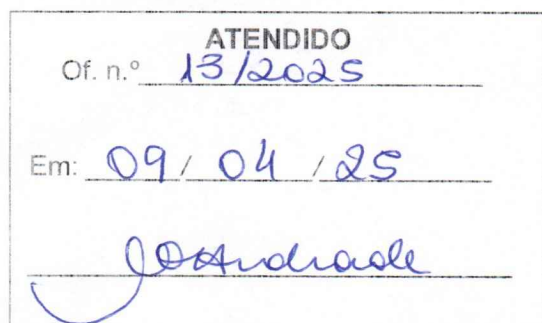 ATENDIDO
Of. n.º 13/2025
Em: 09/04/25